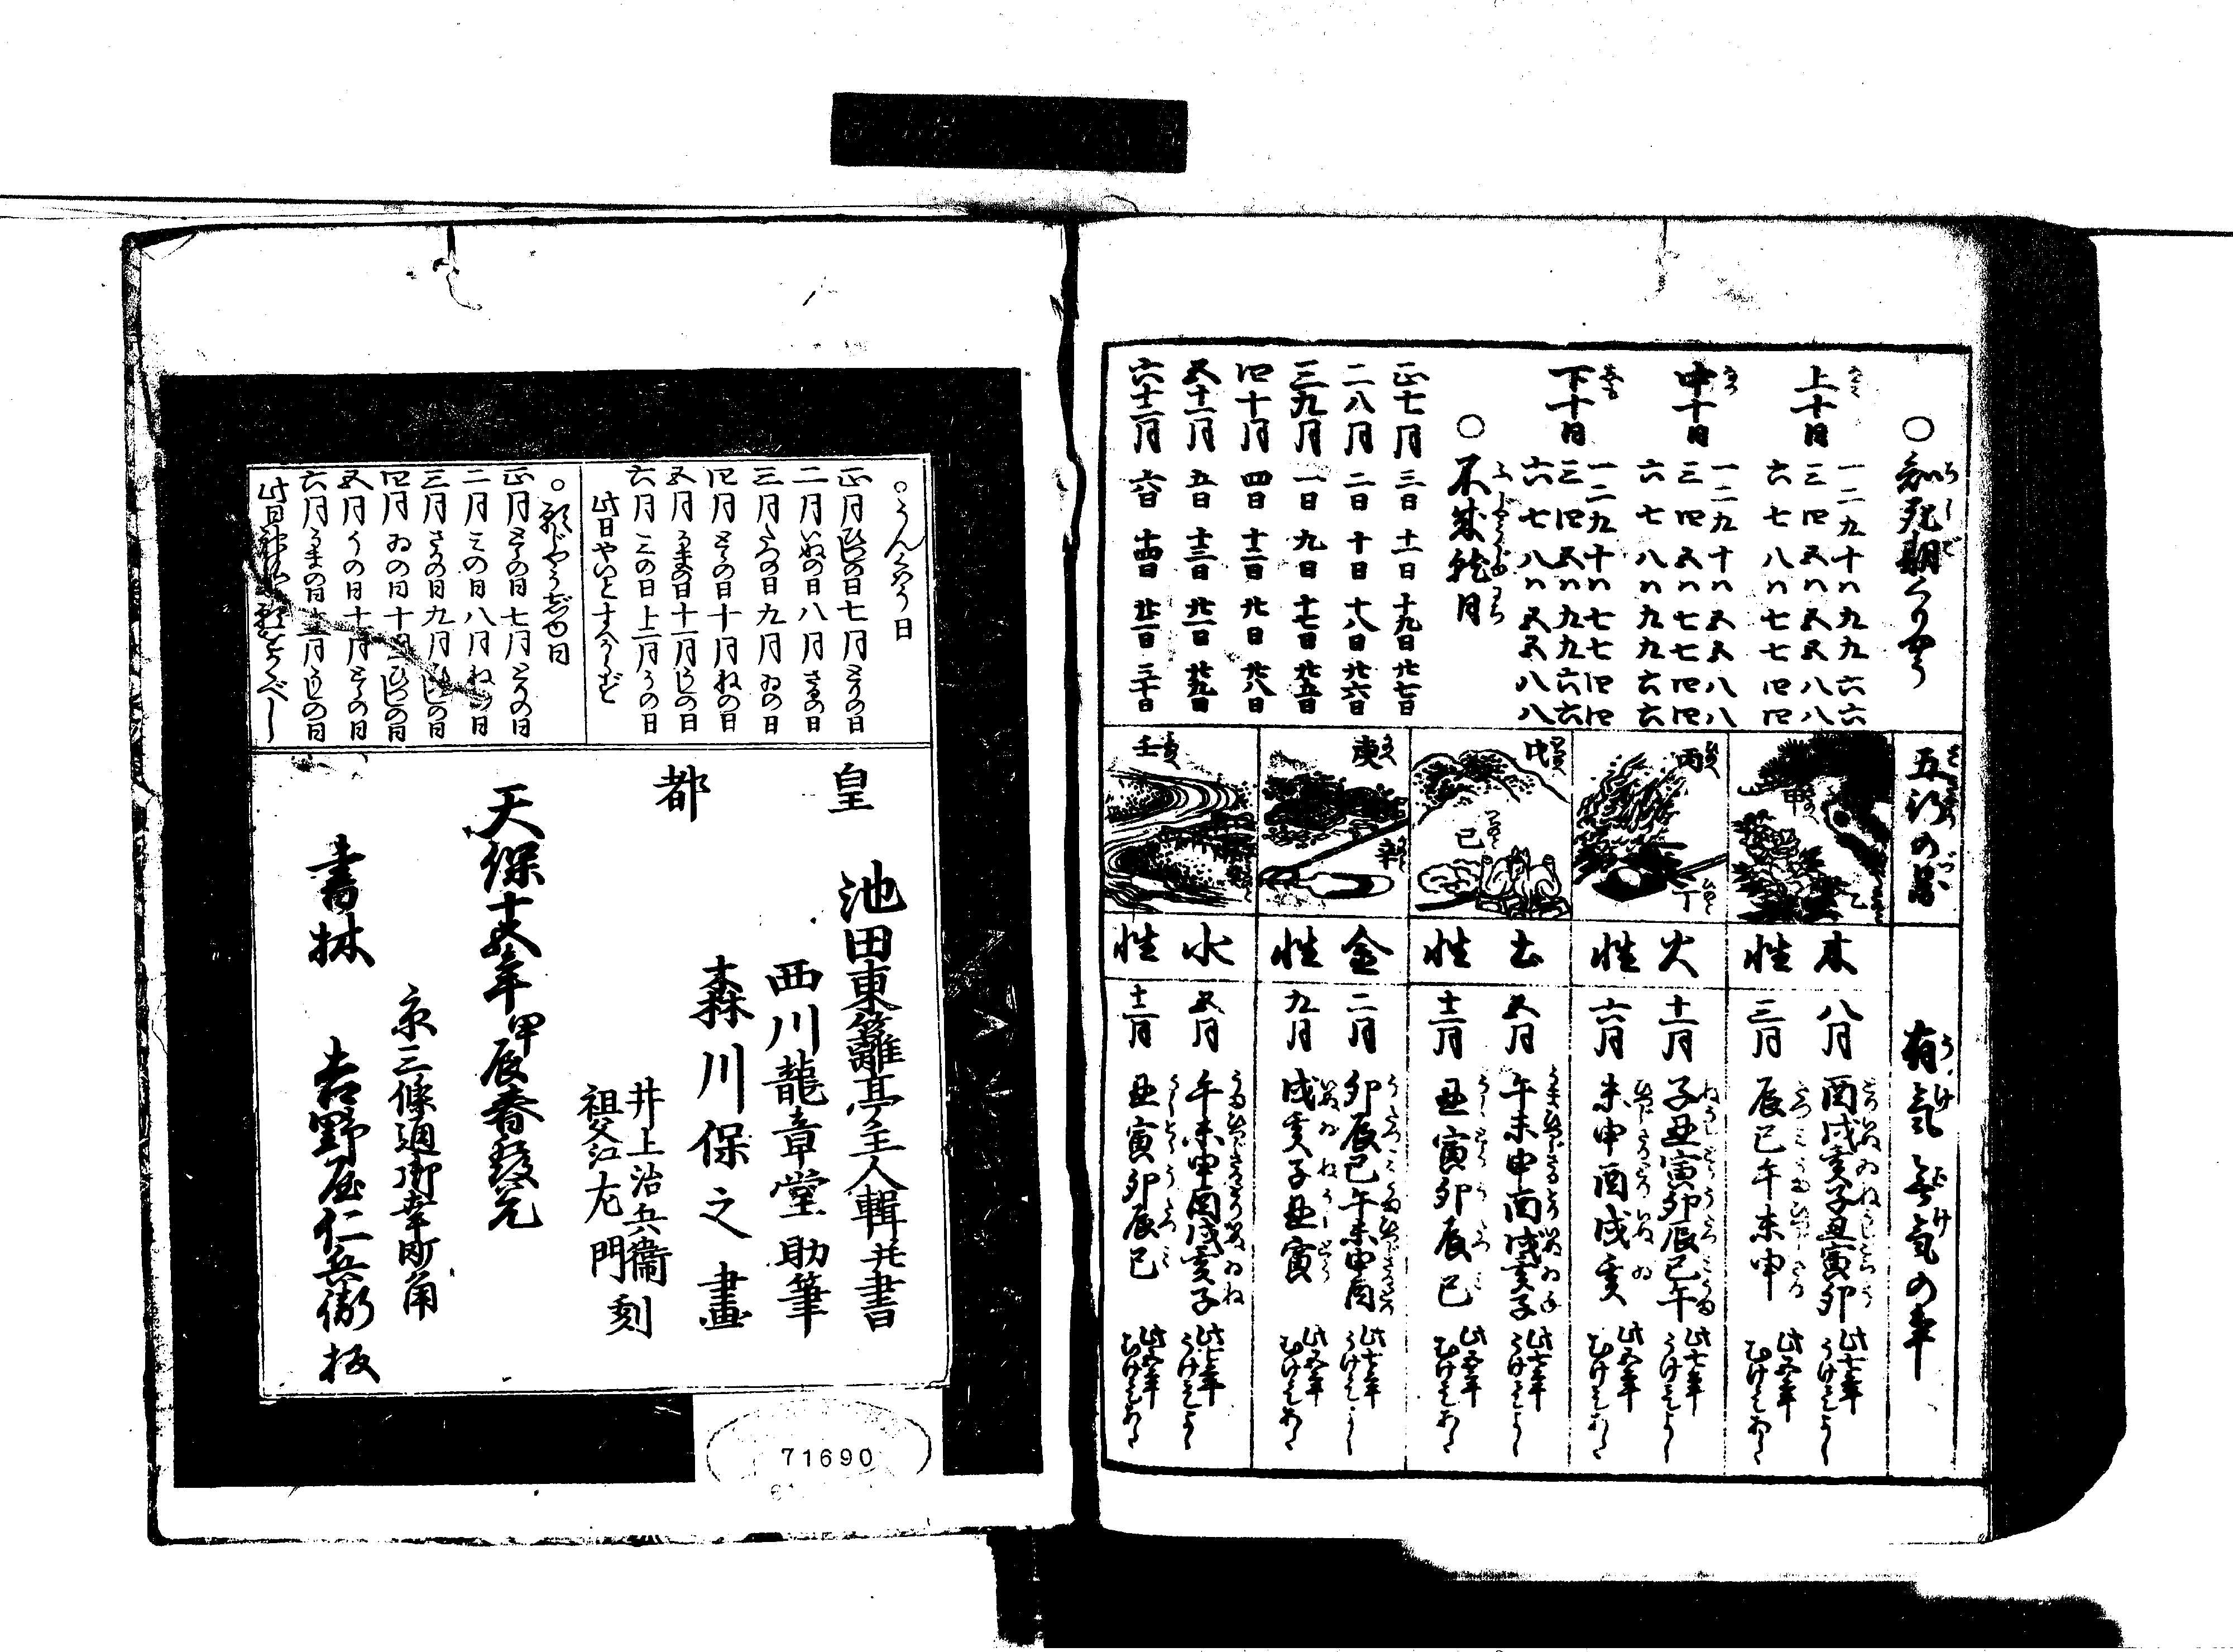 ○知死期くりやう
上十日
一二九十ハ九九六六
三四五ハ五五八八
六七八ハ七七四四
中十日
一二九十ハ五五八八
三四五ハ七七四四
六七八ハ九九六六
下十日
一二九十ハ七七四四
三四五ハ九九六六
六七八ハ五五八八
○不成就日
正七月 三日 十一日 十九日 廿七日
二八月 二日 十日 十八日 廿六日
三九月 一日 九日 十七日 廿五日
四十月 四日 十二日 廿日 廿八日
五十一月 五日 十三日 廿一日 廿九日
六十二月 六日 十四日 廿二日 三十日
五行の図
甲
乙
丙
丁
戊
己
庚
辛
壬
有気無気の年
木性
八月 酉戌亥子丑寅卯 此七年うけに入
三月 辰巳午未申 此五年むけに入
火性
十一月 子丑寅卯辰巳午 此七年うけに入
六月 未申酉戌亥 此五年むけに入
土性
五月 午未申酉戌亥子 此七年うけに入
十二月 丑寅卯辰巳 此五年むけに入
金性
二月 卯辰巳午未申酉 此七年うけに入
九月 戌亥子丑寅 此五年むけに入
水性
五月 午未申酉戌亥子 此七年うけに入
十二月 丑寅卯辰巳 此五年むけに入
正月ひつの日七月とりの日
二月いぬの日八月さるの日
三月たつの日九月ゐの日
四月とらの日十月ねの日
五月うまの日十一月うしの日
六月ミの日十二月うの日
此日やいとすべからず
正月とらの日七月とりの日
二月ミの日八月ねの日
三月さるの日九月うしの日
四月ゐの日十月ひつの日
五月うの日十一月とらの日
六月うまの日十二月うしの日
皇都
池田東籬亭主人輯并書
西川龍章堂助筆
森川保之畫
井上治兵衞
祖父江左門 刻
天保十五年甲辰春發兌
京三條通御幸町角
書林 吉野屋仁兵衞板
71690